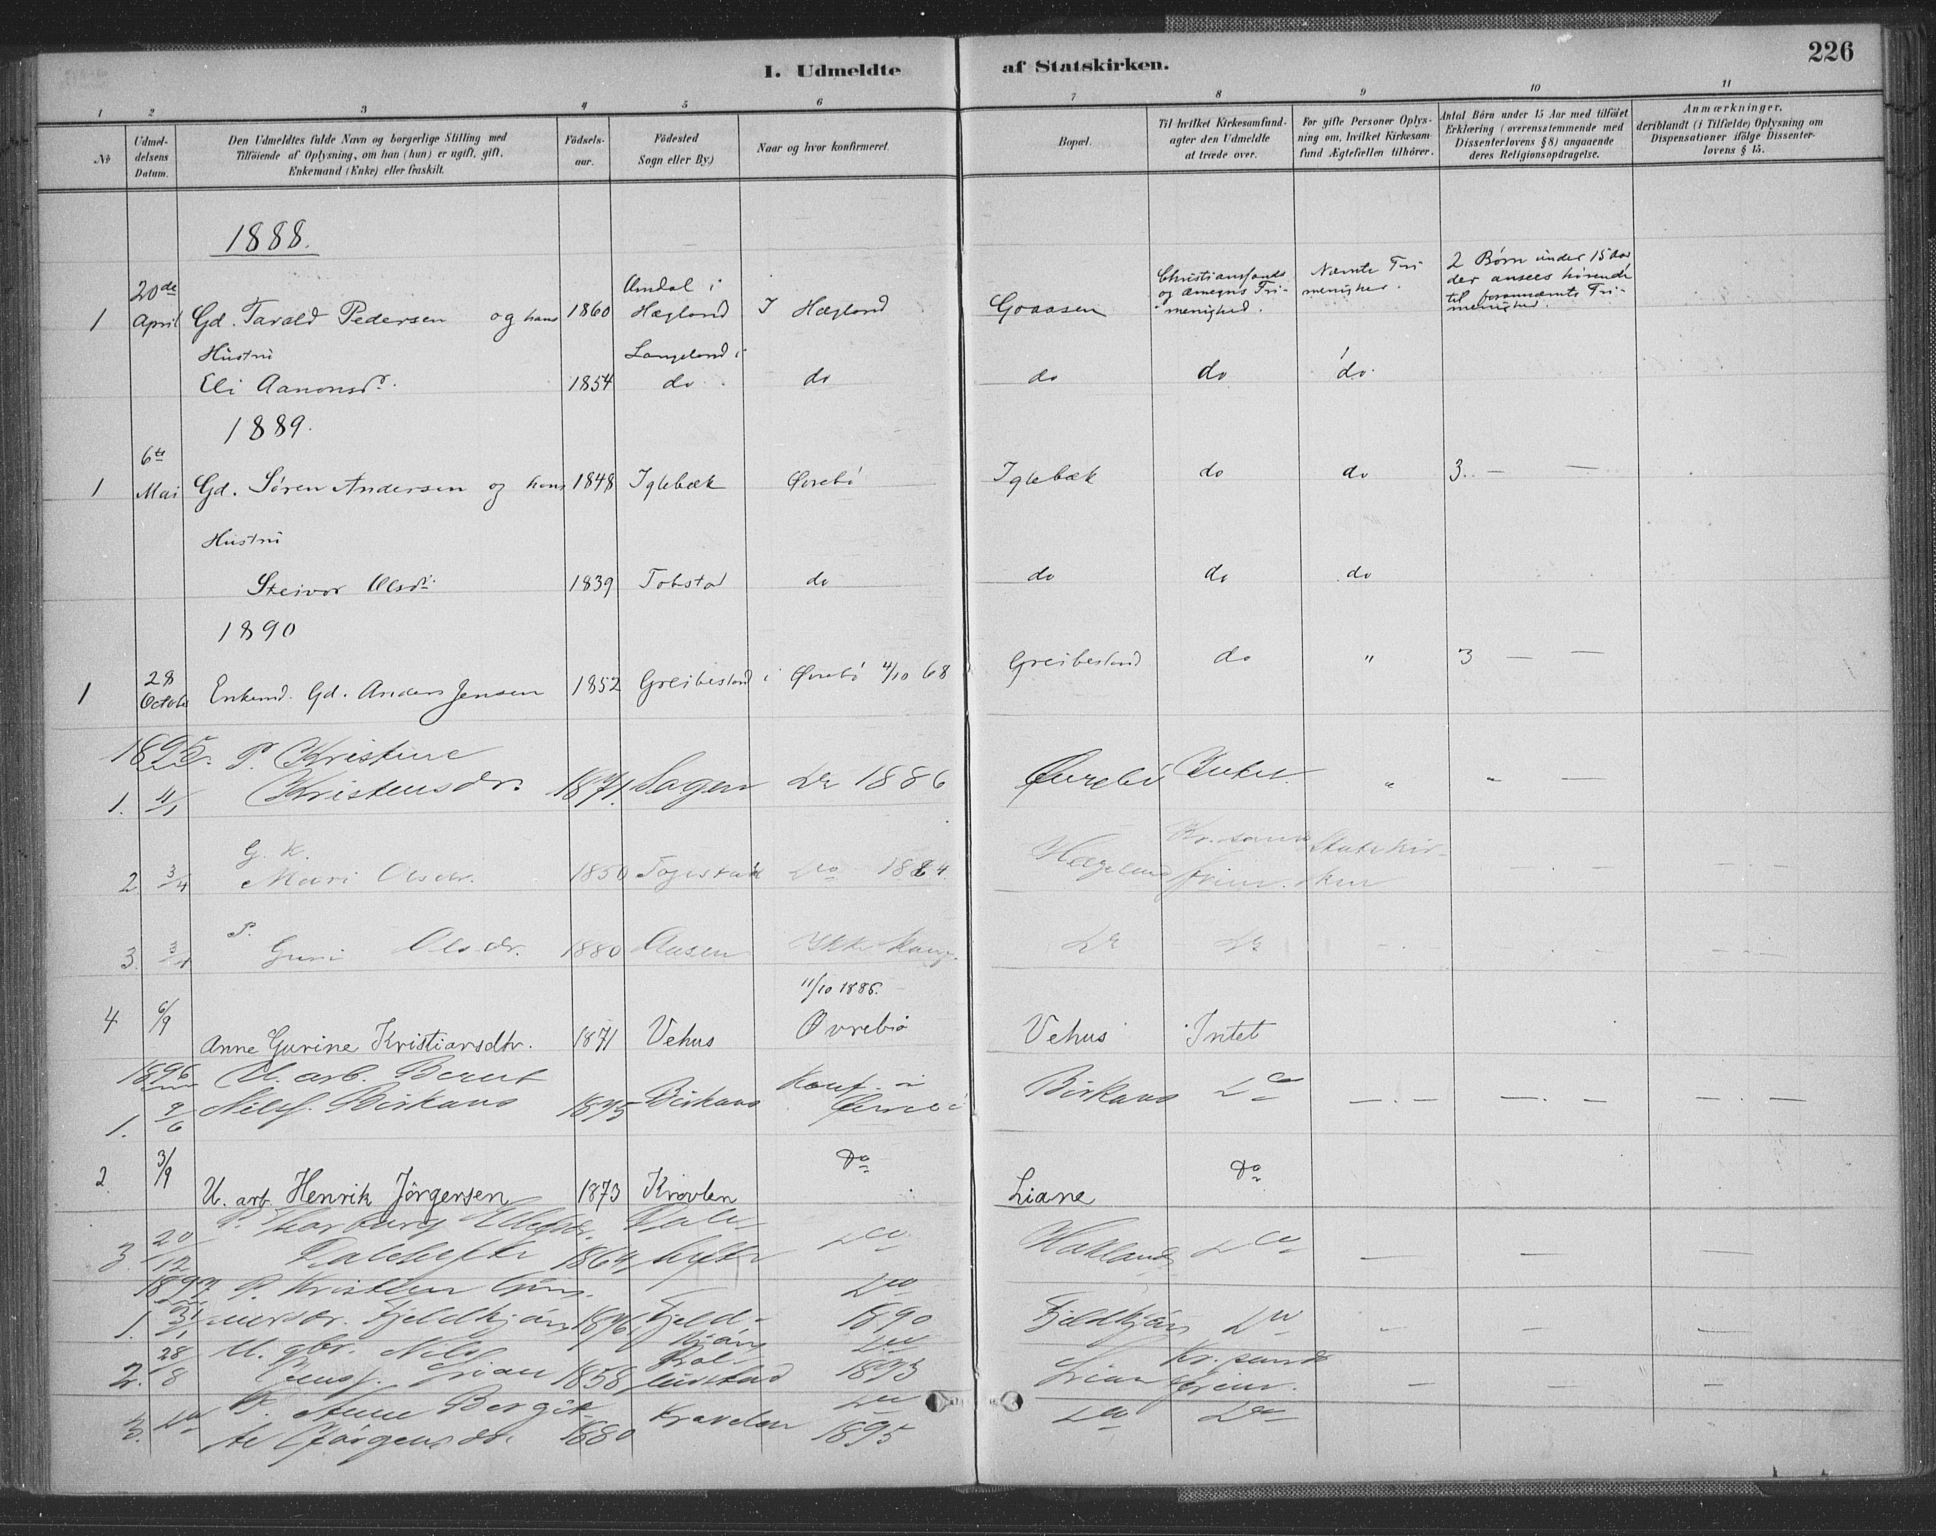 226
I. Udmeldte af Statskirken.
1 2 3 4 5 6 7 8 9 10 11
No
Udmeldelsens Datum.
Den Udmeldtes fulde Navn og borgerlige Stilling med
Tilföiende af Oplysning, om han (hun) er ugift, gift,
Enkemand (Enke) eller fraskilt.
Födselsaar.
Födested
Sogn eller By)
Naar og hvor konfirmeret.
Bopæl.
Til hvilket Kirkesamfund
agter den Udmeldte
at træde over.
For gifte Personer Oplysning
om, hvilket Kirkesamfund
Ægtefællen tilhörer.
Antal Børn under 15 Aar med tilföiet
Erklæring (overensstemmende med
Dissenterlovens § 8) angaaende
deres Religionsopdragelse.
Anmærkninger,
deriblandt (i Tilfælde) Oplysning om
Dispensationer ifölge Dissenterlovens § 15.
1888.
1 20de April Gd. Tarald Pedersen og hans 1860 Omdal i Hægland I Hægland Goaasen Christianssands og Omegns Frimenighed. Nævnte Frimenighed. 2 Børn under 15 Aar der ansees hørende til forannævnte Frimenighed.
Hustru
Eli Aanonsdr. 1854 Langeland i do. do do do do.
1889.
1 6te Mai Gd. Søren Andersen og hans 1848 Iglebæk Øvrebö Iglebæk do do 3. — —
Hustru
Steivor Olsdr. 1839 Tobstad do do do do
1890
1 28 October Enkemd. Gd. Anders Jensen 1852 Greibesland i Øvrebö 4/10 68 Greibesland do " 3 — —
1895. P. Kristine
1. 4/1 Kristensdr. 1871. Sagen Do 1886 Øvrebö Intet. " " —
G. K.
2 3/4 Mari Olsdr. 1850 Do Hægeland Kr.sands Frim. Statskirken — . —
P.
3. 3/4 Guri Olsdr. 1880 Aasen Ikke Do Do
11/10 1886.
4 6/9 Anne Gurine Kristiansdtr. 1871 Vehus Øvrebø Vehus Intet
1896 U. arb. Berent
1. 9/6 Nilsf. Birkaas 1875 Birkaas Konf. i Øvrebö Birkaas Do — . — — . — — . —
2. 3/9 U. arb. Henrik Jörgensen 1873 Kravlen Do Liane Do
3. 20/12 P. 1864 Do Do — — —
1897. P.
1. Fjeldkjær 1876 Fjeldkjær Do 1890 Fjeldkjær Do - — —
2. 28/8 U. gbr. Nils 1858 Do 1873 Lian Kr.sands Frim. — — —
3. Do P. Anne Bergitte Jörgensdr. 1880 Kravelen Do 1895 Do Do